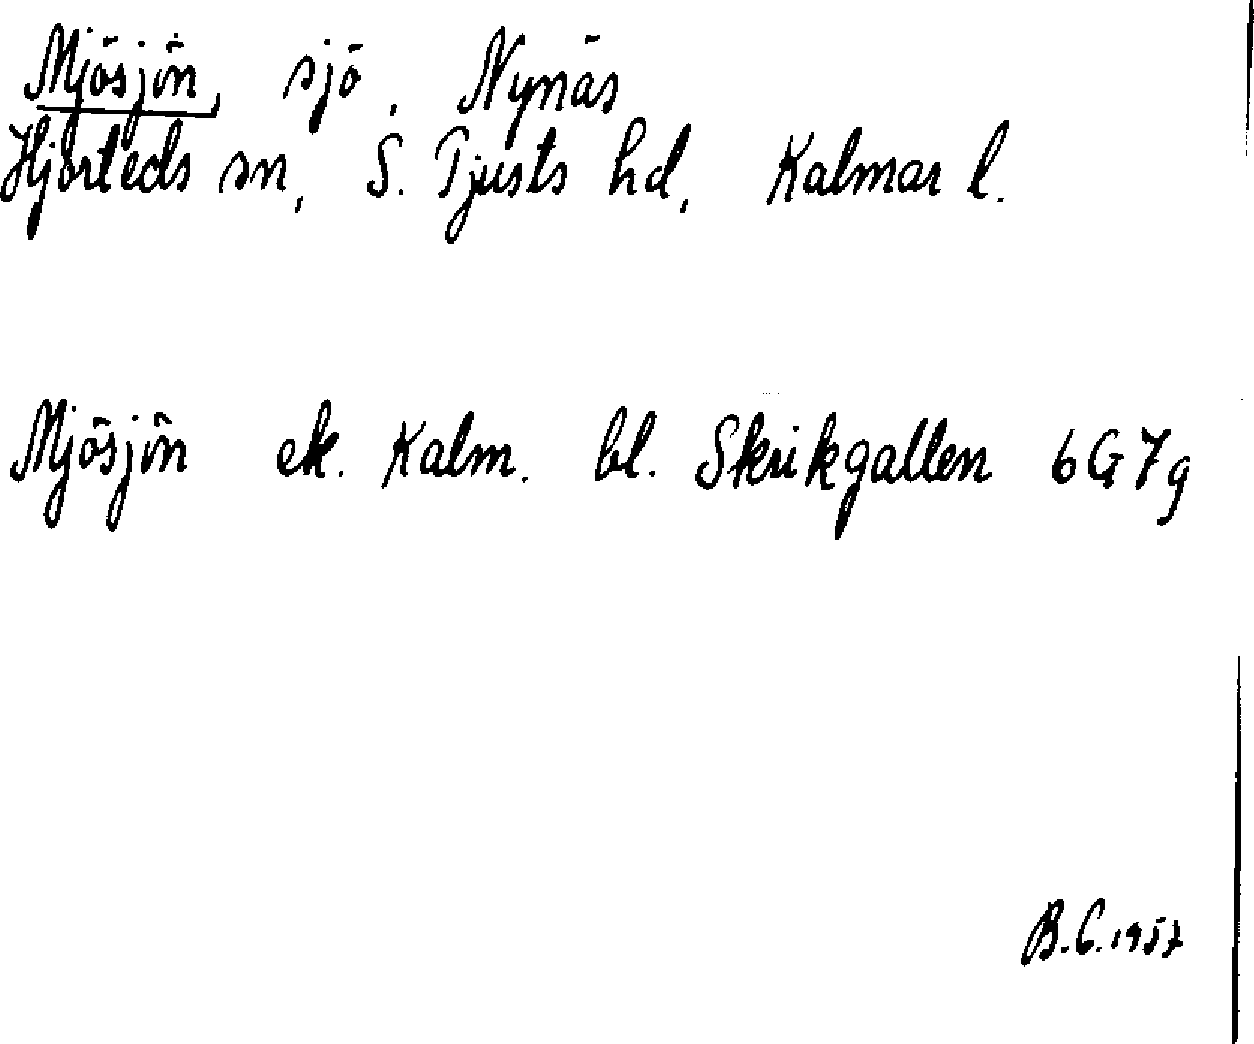 Mjösjön, sjö, Nynäs
Hjorteds sn, S. Tjusts hd, Kalmar l.
Mjösjön ek. Kalm. bl. Skrikgallen 6G7g
B.C. 1957